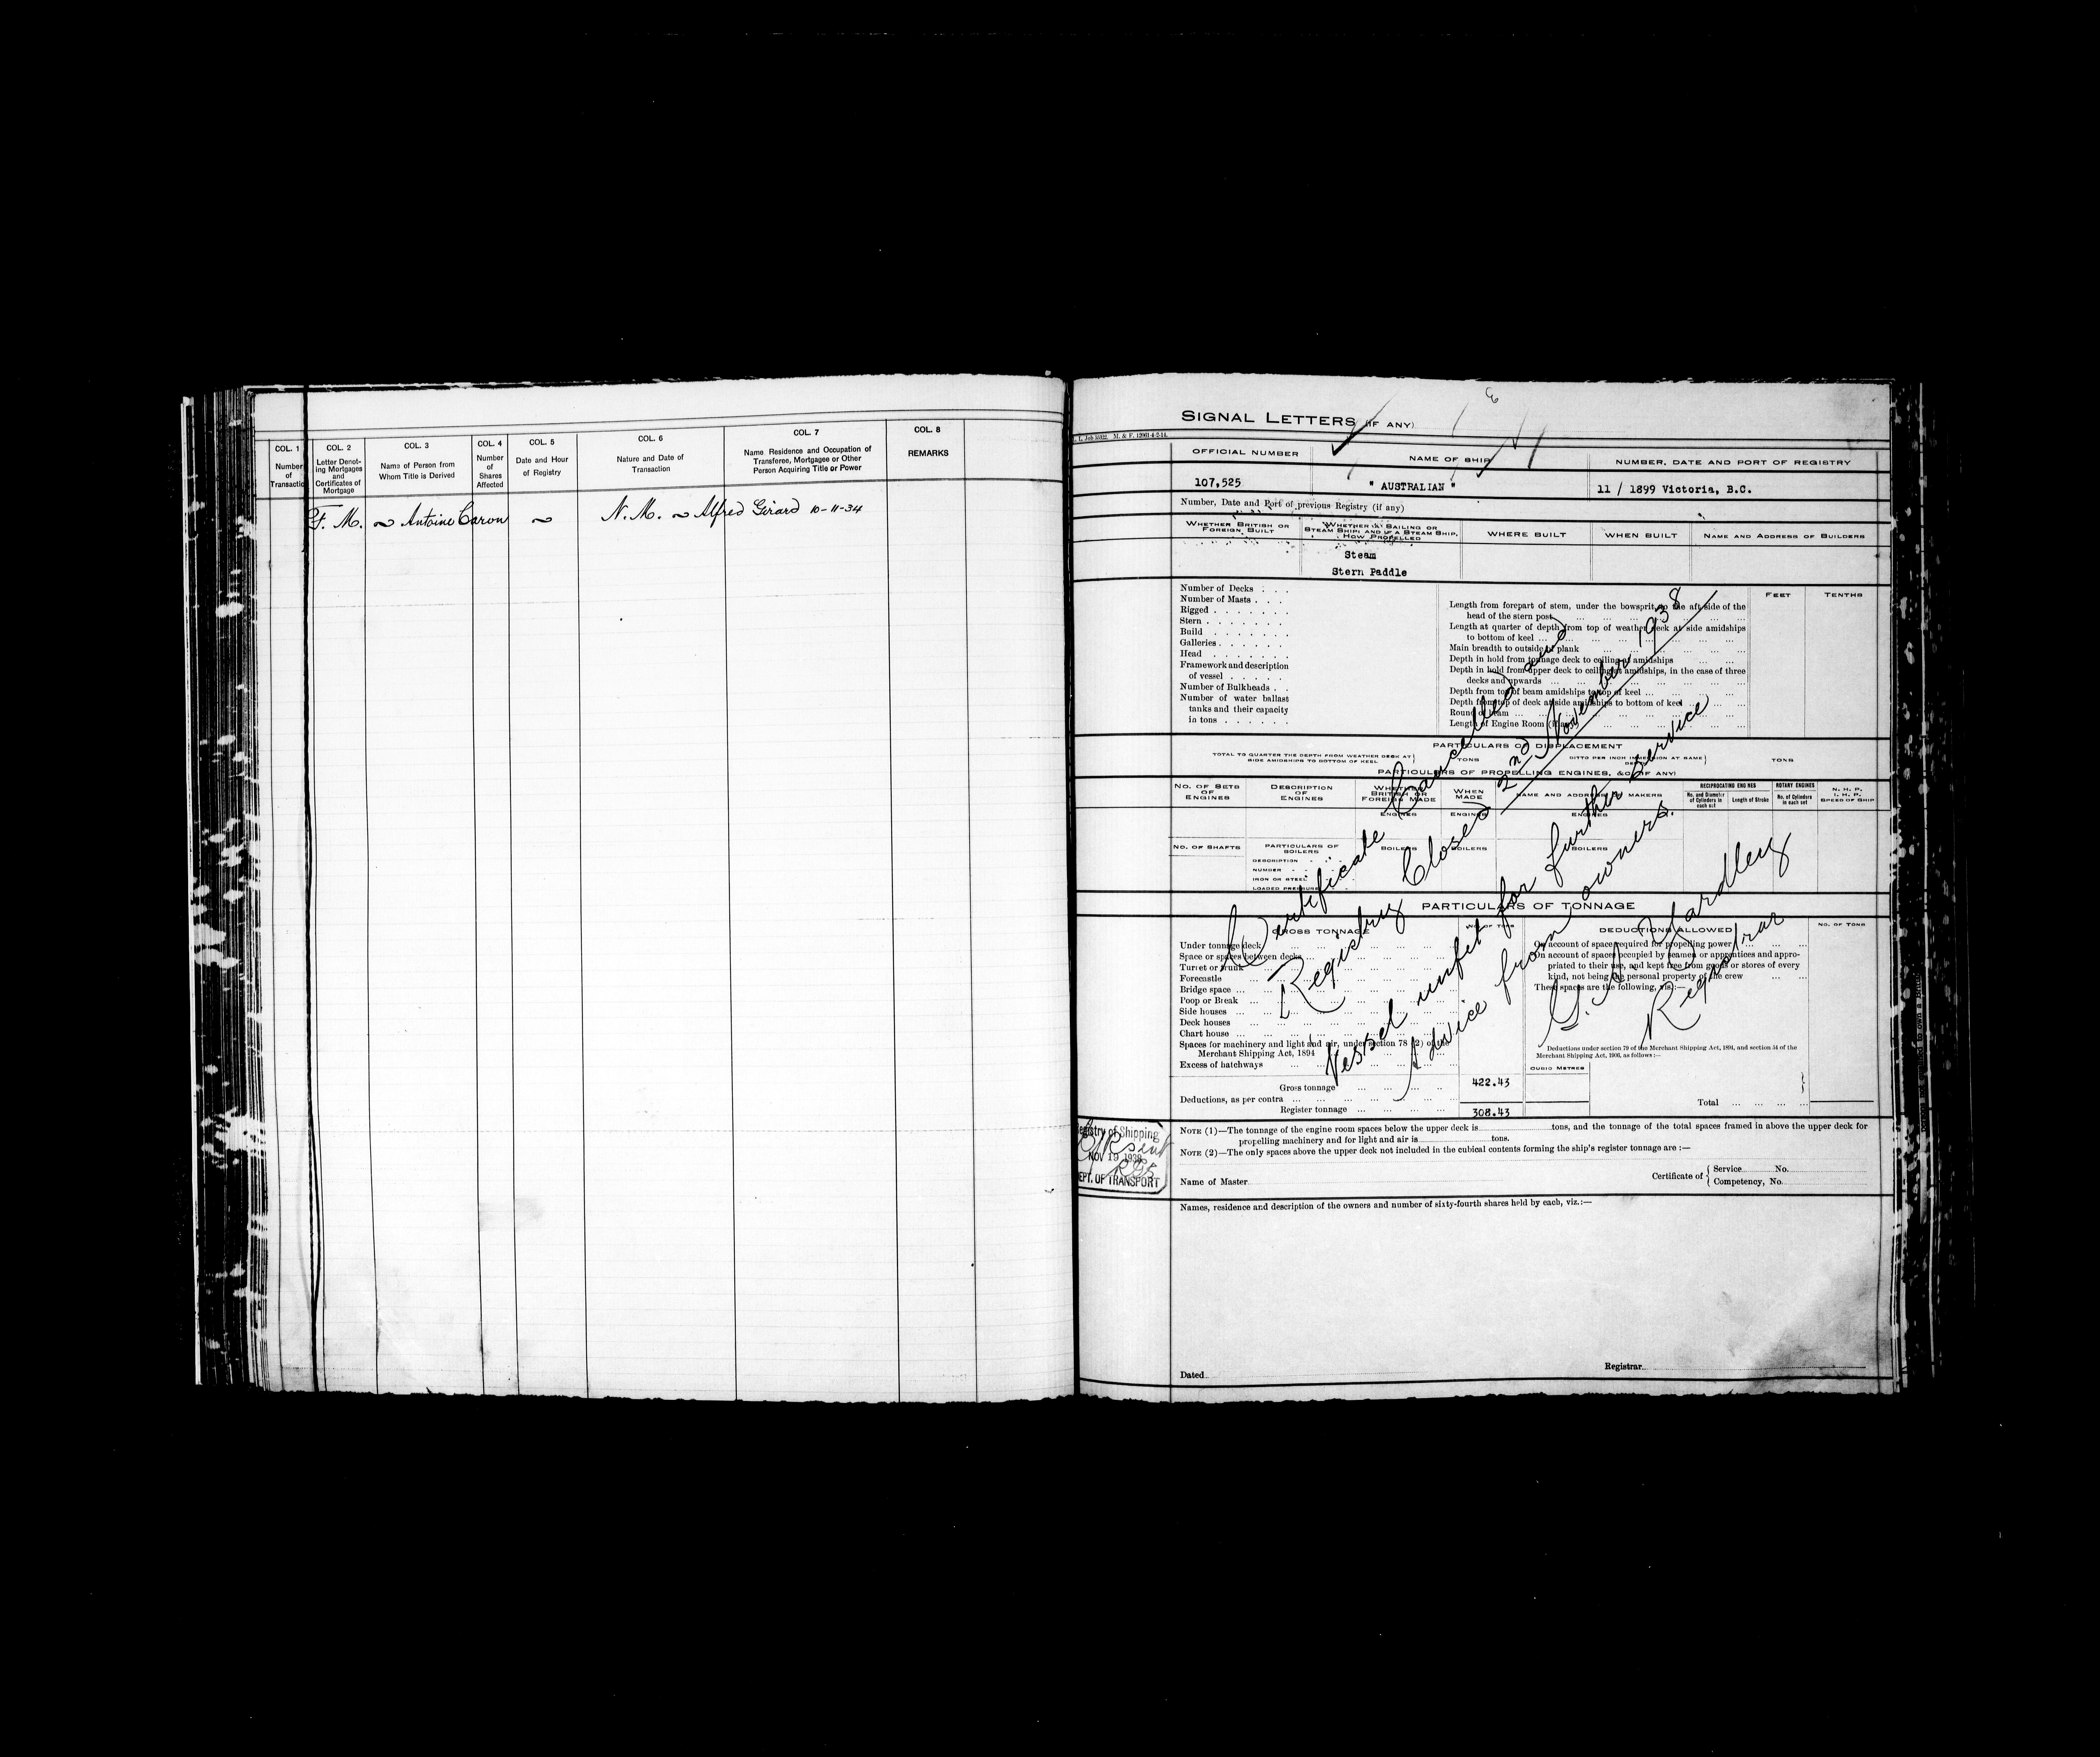 COL. 1
Number
of
Transaction
COL. 2
Letter Denot-
ing Mortgages
and
Certificates of
Mortgage
COL. 3
Name of Person from
Whom Title is Derived
COL. 4
Number
of
Shares
Affected
COL. 5
Date and Hour
of Registry
COL. 6
Nature and Date of
Transaction
COL. 7
Name Residence and Occupation of
Transferee, Mortgagee or Other
Person Acquiring Title or Power
COL. 8
REMARKS
F. M. ~ Antoine Caron ~ N. M. ~ Alfred Girard 10-11-34
SIGNAL LETTERS (IF ANY)
OFFICIAL NUMBER
NAME OF SHIP
NUMBER, DATE AND PORT OF REGISTRY
107,525
" AUSTRALIAN "
11 / 1899 Victoria, B.C.
Number, Date and Port of previous Registry (if any)
WHETHER BRITISH OR
FOREIGN BUILT
WHETHER A SAILING OR
STEAM SHIP; AND IF A STEAM SHIP,
HOW PROPELLED
WHERE BUILT
WHEN BUILT
NAME AND ADDRESS OF BUILDERS
Steam
Stern Paddle
Number of Decks . . .
Number of Masts . . .
Rigged . . . . . . .
Stern . . . . . . .
Build . . . . . . .
Galleries . . . . . .
Head . . . . . . .
Framework and description
of vessel . . . . .
Number of Bulkheads . .
Number of water ballast
tanks and their capacity
in tons . . . . . .
FEET
TENTHS
Length from forepart of stem, under the bowsprit, to the aft side of the
head of the stern post
Length at quarter of depth from top of weather deck at side amidships
to bottom of keel
Main breadth to outside of plank
Depth in hold from tonnage deck to ceiling at amidships
Depth in hold from upper deck to ceiling at amidships, in the case of three
decks and upwards
Depth from top of beam amidships to top of keel
Depth from top of deck at side amidships to bottom of keel
Round of beam
Length of Engine Room (if any)
PARTICULARS OF DISPLACEMENT
TOTAL TO QUARTER THE DEPTH FROM WEATHER DECK AT
SIDE AMIDSHIPS TO BOTTOM OF KEEL
TONS
DITTO PER INCH IMMERSION AT SAME
DEPTH
TONS
PARTICULARS OF PROPELLING ENGINES, &C. (IF ANY)
NO. OF SETS
OF
ENGINES
DESCRIPTION
OF
ENGINES
WHETHER
BRITISH OR
FOREIGN MADE
WHEN
MADE
NAME AND ADDRESS OF MAKERS
RECIPROCATING ENGINES
No. and Diameter
of Cylinders in
each set
Length of Stroke
ROTARY ENGINES
No. of Cylinders
in each set
N. H. P.
I. H. P.
SPEED OF SHIP
ENGINES
ENGINES
ENGINES
NO. OF SHAFTS
PARTICULARS OF
BOILERS
BOILERS
BOILERS
BOILERS
DESCRIPTION
NUMBER
IRON OR STEEL
LOADED PRESSURE
PARTICULARS OF TONNAGE
GROSS TONNAGE
NO. OF TONS
DEDUCTIONS ALLOWED
NO. OF TONS
Under tonnage deck
Space or spaces between decks
Turret or trunk
Forecastle
Bridge space
Poop or Break
Side houses
Deck houses
Chart house
Spaces for machinery and light and air, under section 78 (2) of the
Merchant Shipping Act, 1894
Excess of hatchways
Gross tonnage
422.43
Deductions, as per contra
Register tonnage
308.43
On account of space required for propelling power
On account of spaces occupied by seamen or apprentices and appro-
priated to their use, and kept free from goods or stores of every
kind, not being the personal property of the crew
These spaces are the following, viz.:—
Deductions under section 79 of the Merchant Shipping Act, 1894, and section 54 of the
Merchant Shipping Act, 1906, as follows:—
CUBIC METRES
Total
Certificate Cancelled and
Registry Closed 2nd November 1938
Vessel unfit for further service
Advice from owners.
G. A. Yardley
Registrar
Registry of Shipping
sent
NOV 19 1938
DEPT. OF TRANSPORT
NOTE (1)—The tonnage of the engine room spaces below the upper deck is tons, and the tonnage of the total spaces framed in above the upper deck for
propelling machinery and for light and air is tons.
NOTE (2)—The only spaces above the upper deck not included in the cubical contents forming the ship's register tonnage are :—
Name of Master
Certificate of
Service No.
Competency, No.
Names, residence and description of the owners and number of sixty-fourth shares held by each, viz.:—
Dated
Registrar